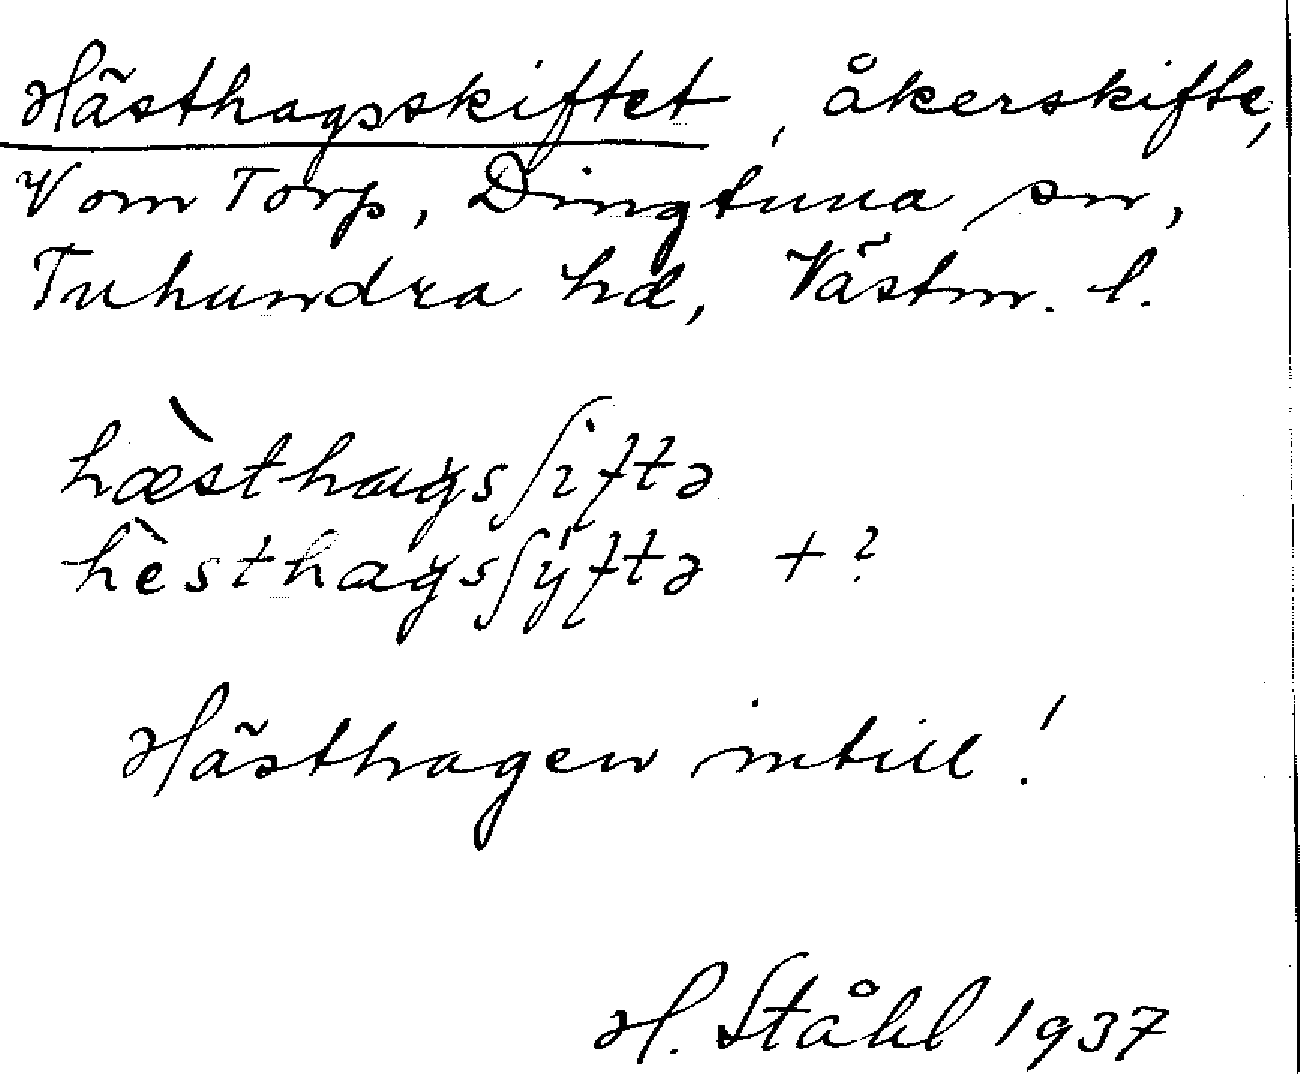 Hästhagsskiftet, åkerskifte,
V om Torp, Dingtuna sn,
Tuhundra hd, Västm. l.
hæ̀sthagsʃiftə
hèsthagsʃyftə + ?
Hästhagen intill!
H. Ståhl 1937